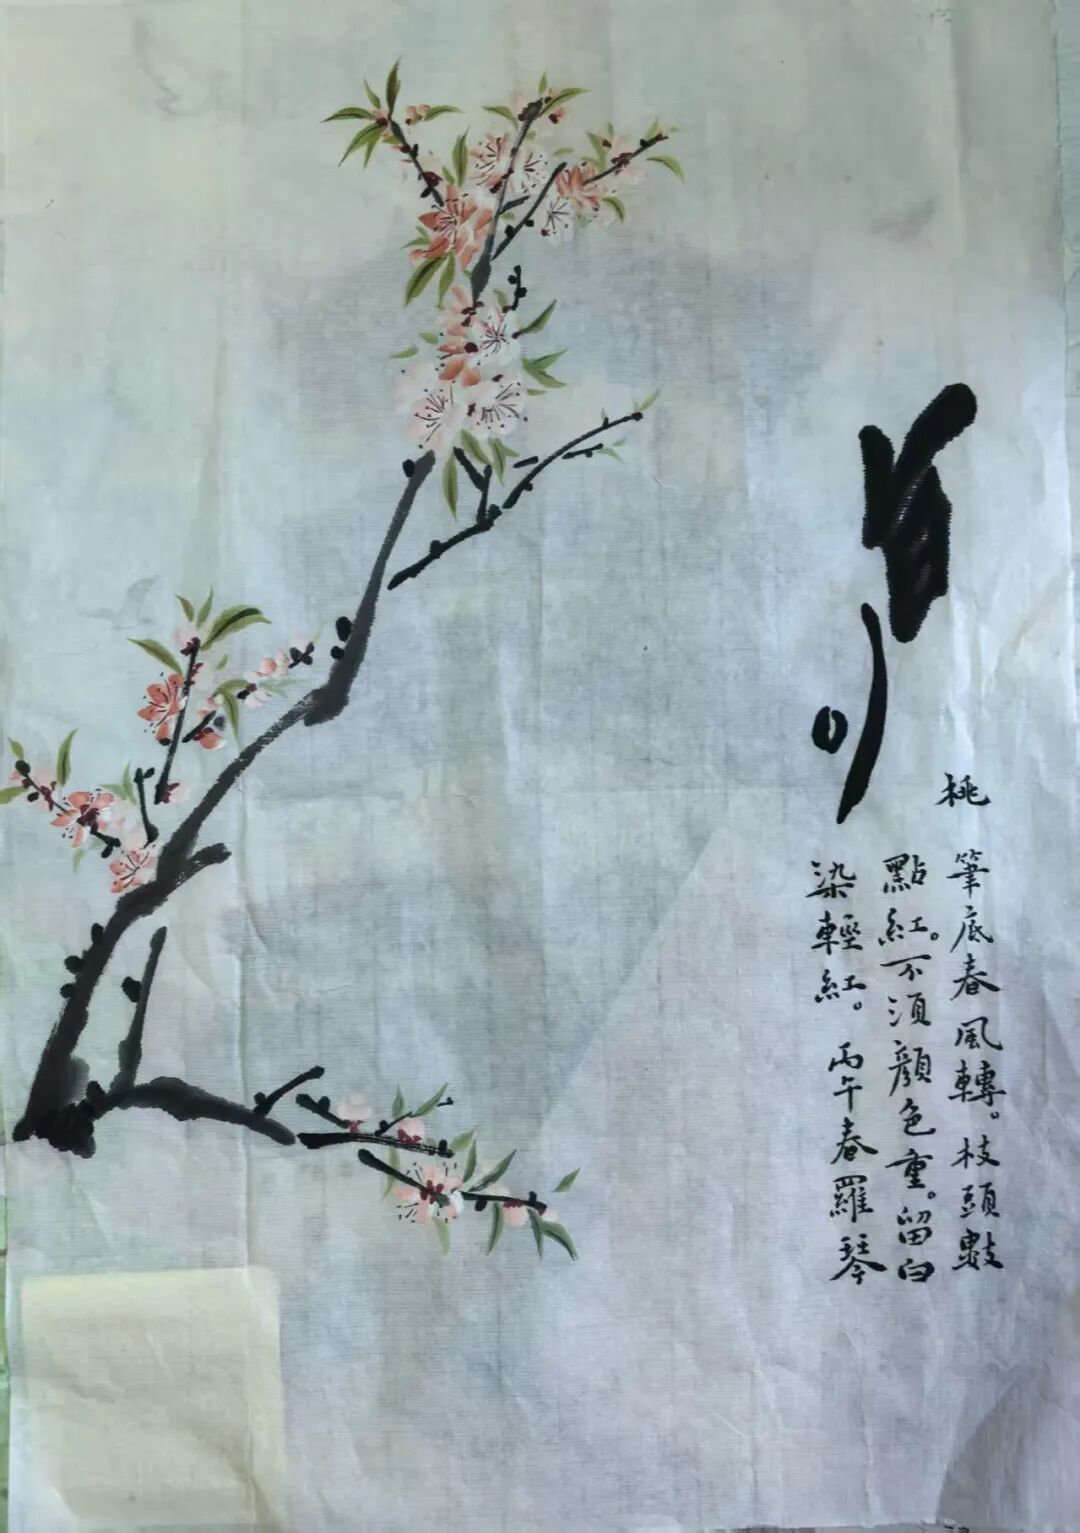 桃
筆底春風轉。枝頭數
點紅。不須顏色重。留白
染輕紅。丙午春羅琴